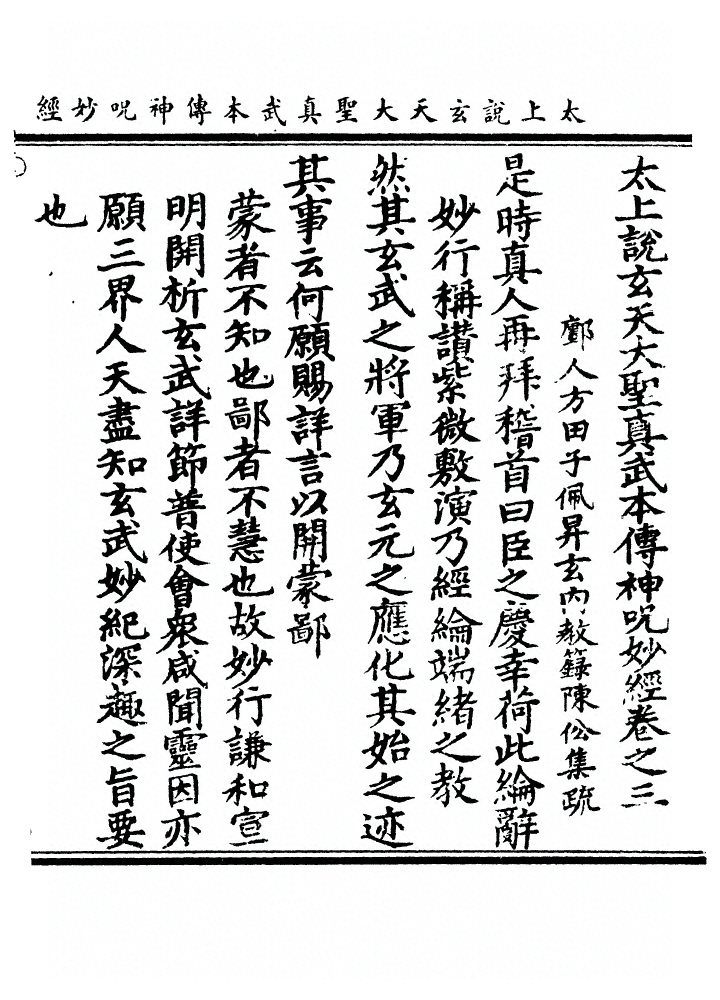 太上說玄天大聖真武本傳神呪妙經
太上說玄天大聖真武本傳神呪妙經卷之三
鄽人方田子佩昇玄內教籙陳伀集疏
是時真人再拜稽首曰臣之慶幸荷此綸辭
妙行稱讚紫微敷演乃經綸端緒之教
然其玄武之將軍乃玄元之應化其始之迹
其事云何願賜詳言以開蒙鄙
蒙者不知也鄙者不慧也故妙行謙和宣
明開析玄武詳節普使會眾咸聞靈因亦
願三界人天盡知玄武妙紀深趣之旨要
也